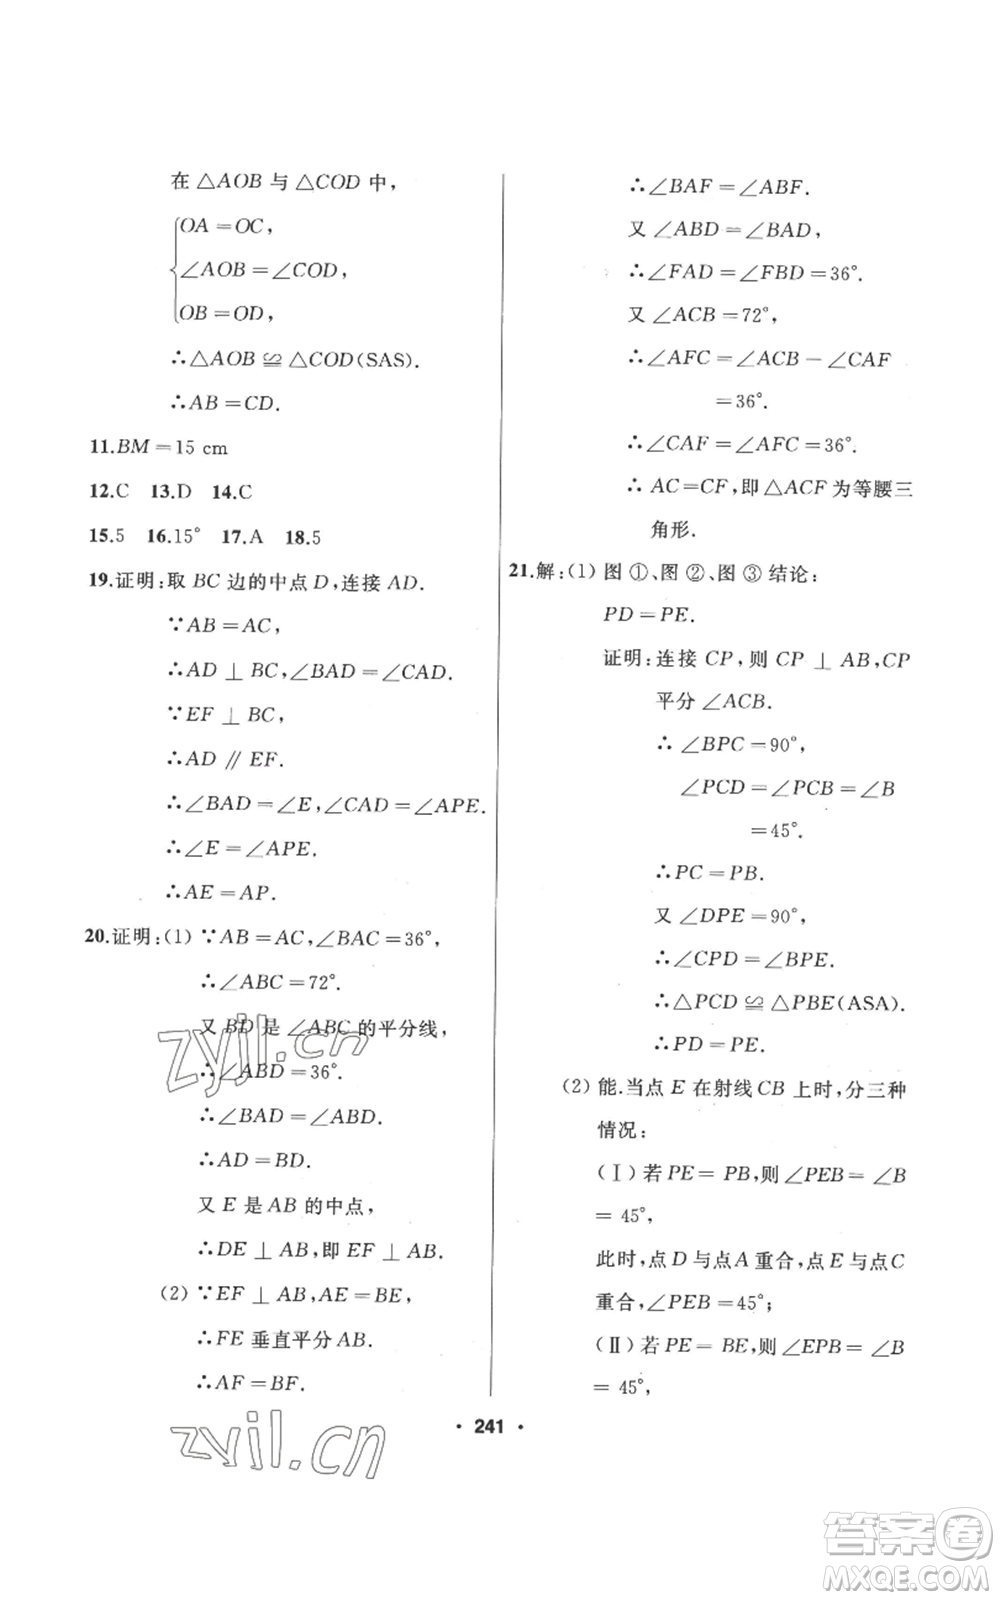 在 △AOB 与 △COD 中，
OA＝OC，
∠AOB＝∠COD，
OB＝OD，
∴△AOB ≌ △COD(SAS).
∴AB＝CD.
11.BM＝15 cm
12.C 13.D 14.C
15.5 16.15° 17.A 18.5
19.证明：取 BC 边的中点 D，连接 AD.
∵AB＝AC，
∴AD ⊥ BC，∠BAD＝∠CAD.
∵EF ⊥ BC，
∴AD ∥ EF.
∴∠BAD＝∠E，∠CAD＝∠APE.
∴∠E＝∠APE.
∴AE＝AP.
20.证明：(1) ∵AB＝AC，∠BAC＝36°，
∴∠ABC＝72°.
又 BD 是 ∠ABC 的平分线，
∴∠ABD＝36°.
∴∠BAD＝∠ABD.
∴AD＝BD.
又 E 是 AB 的中点，
∴DE ⊥ AB，即 EF ⊥ AB.
(2) ∵EF ⊥ AB，AE＝BE，
∴FE 垂直平分 AB.
∴AF＝BF.
∴∠BAF＝∠ABF.
又 ∠ABD＝∠BAD，
∴∠FAD＝∠FBD＝36°.
又 ∠ACB＝72°，
∴∠AFC＝∠ACB－∠CAF
＝36°.
∴∠CAF＝∠AFC＝36°.
∴ AC＝CF，即 △ACF 为等腰三
角形.
21.解：(1) 图 ①、图 ②、图 ③ 结论：
PD＝PE.
证明：连接 CP，则 CP ⊥ AB，CP
平分 ∠ACB.
∴ ∠BPC＝90°，
∠PCD＝∠PCB＝∠B
＝45°.
∴PC＝PB.
又 ∠DPE＝90°，
∴∠CPD＝∠BPE.
∴△PCD ≌ △PBE(ASA).
∴PD＝PE.
(2) 能.当点 E 在射线 CB 上时，分三种
情况：
(Ⅰ) 若 PE＝ PB，则 ∠PEB＝ ∠B
＝ 45°，
此时，点 D 与点 A 重合，点 E 与点 C
重合，∠PEB＝45°；
(Ⅱ) 若 PE＝ BE，则 ∠EPB＝ ∠B
＝ 45°，
• 241 •
zyjl.cn
zyjl.cn
答案卷
MXQE.COM